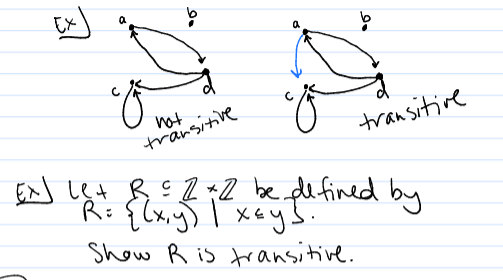 Ex)
a
b
c
d
not
transitive
a
b
c
d
transitive
Ex) Let R ⊆ ℤ×ℤ be defined by
R = {(x,y) | x≤y}.
Show R is transitive.